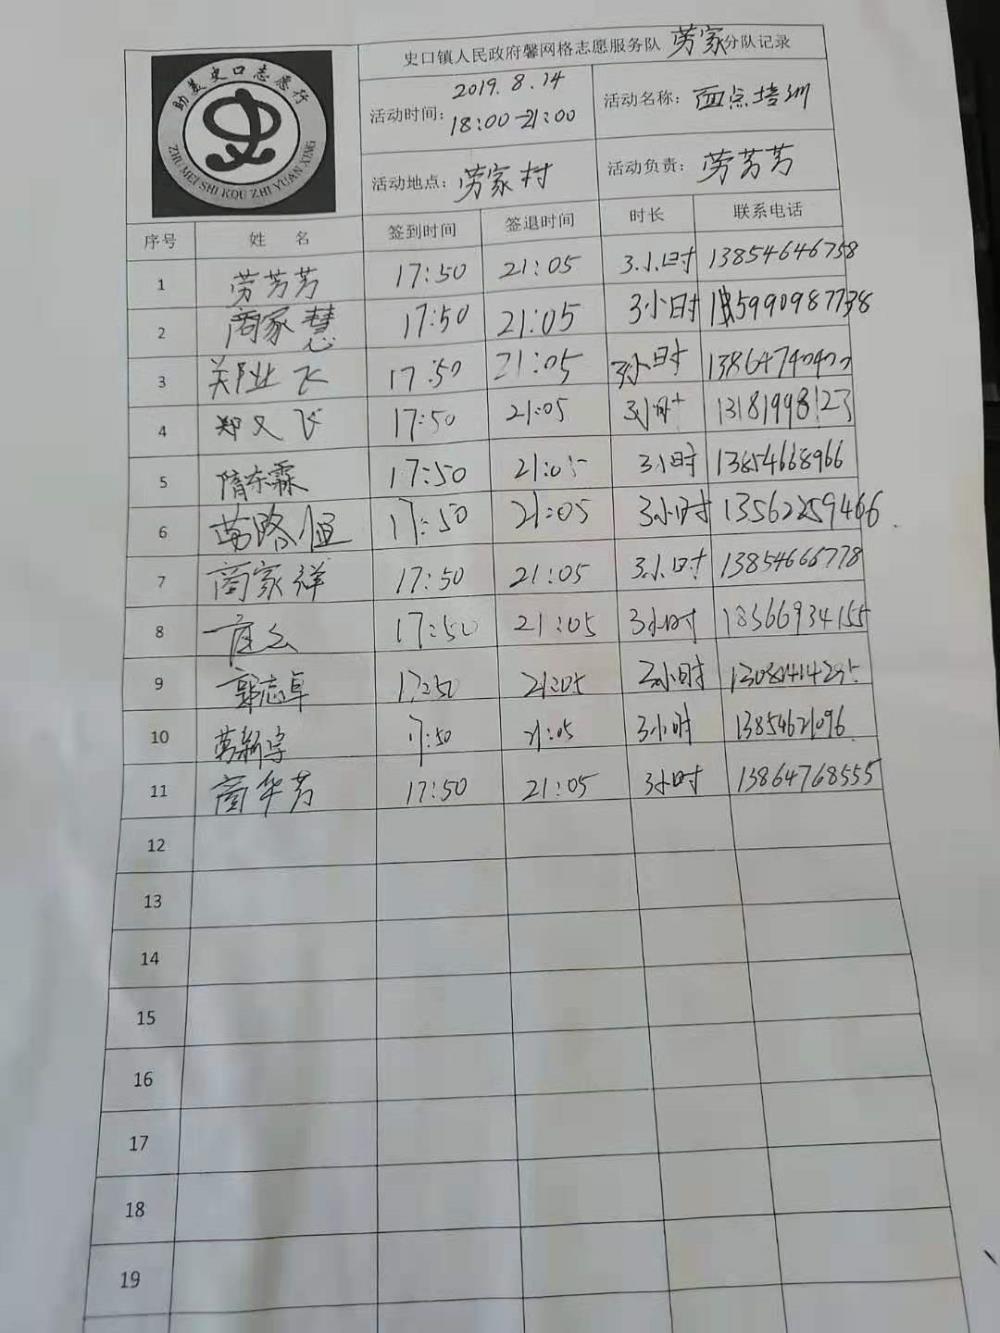 史口镇人民政府馨网格志愿服务队 劳家分队记录
助美史口志愿行
ZHU MEI SHI KOU ZHI YUAN XING
活动时间: 2019.8.14
18:00-21:00
活动名称: 面点培训
活动地点: 劳家村
活动负责: 劳芳芳
序号 姓 名 签到时间 签退时间 时长 联系电话
1 劳芳芳 17:50 21:05 3小时 13854646758
2 商家慧 17:50 21:05 3小时 15990987738
3 17:50 21:05 3小时
4 郑文飞 17:50 21:05 3小时 13181998123
5 隋东霖 17:50 21:05 3小时 13854668966
6 劳路恒 17:50 21:05 3小时 13562259466
7 商家祥 17:50 21:05 3小时 13854666778
8 17:50 21:05 3小时 18366934155
9 郭志卓 17:50 21:05 3小时
10 劳新宇 17:50 21:05 3小时 13854621096
11 商华芳 17:50 21:05 3小时 13864768555
12
13
14
15
16
17
18
19